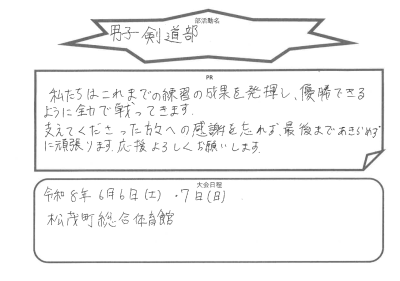 部活動名
男子剣道部
PR
私たちはこれまでの練習の成果を発揮し、優勝できる
ように全力で戦ってきます。
支えてくださった方々への感謝を忘れず、最後まであきらめず
に頑張ります。応援よろしくお願いします。
大会日程
令和8年 6月6日(土)・7日(日)
松茂町総合体育館